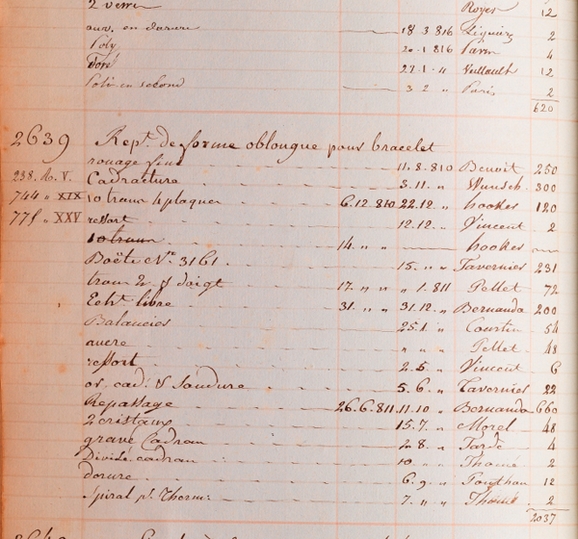 2 verre Royer 12
our. en dorure 18.3.816 2
Poly 20.1.816 4
Doré 27.1. " Vuillault 12
Poli en second 3.2. " Paris 2
620
2639 Rept. de forme oblongue pour bracelet
rouage fini 11.8.810 Benoit 250
238. R. V. Cadracture 3.11. " Wunsch 300
744 " XIX 10 trous 4 plaques 6.12.810 22.12. " hookes 120
775 " XXV ressort 12.12. " Vincent 2
10 trous 14. " " hookes
Boëte No. 3161 15. " " Tavernier 231
trous 2 & doigt 17. " " " 1.811 Pellet 72
Echt. libre 31. " " 31.12. " Bernauda 200
Balancier 25.1. " 54
ancre " " " Pellet 48
ressort 2.5. " Vincent 6
or. cad: & Soudure 5.6. " Tavernier 22
Repassage 26.6.811 11.10 " Bernauda 660
2 cristaux 15.7. " Morel 48
gravé Cadran 2.8. " Tardé 4
Divisé cadran 10. " " Thomé 2
dorure 6.9. " 12
Spiral pr. Therm: 7. " " 2
2037